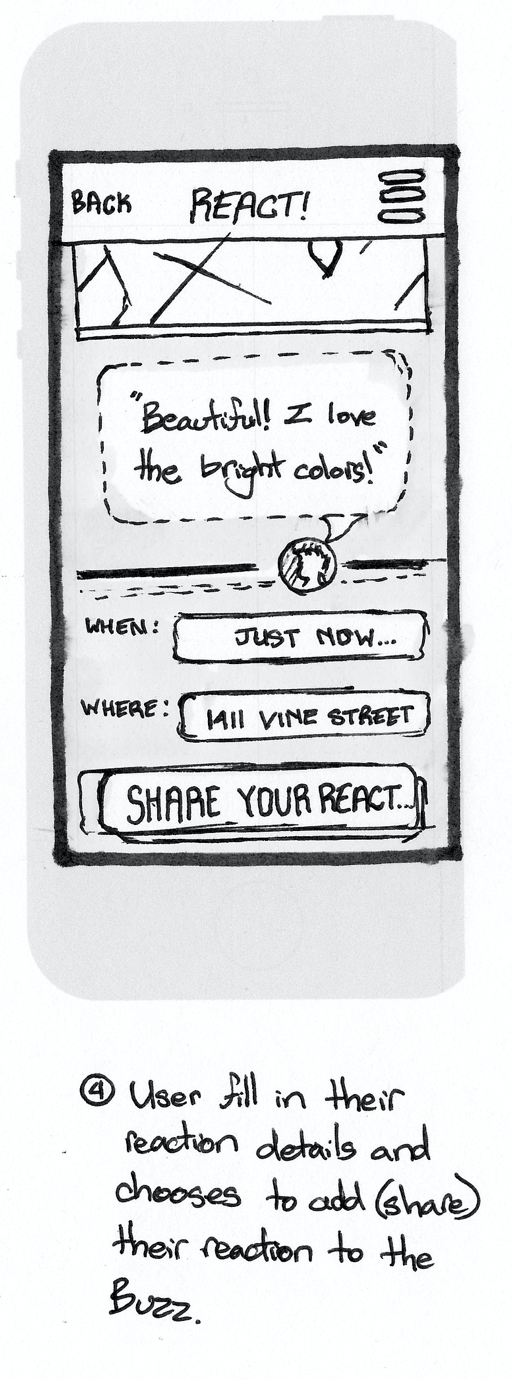 BACK REACT!
"Beautiful! I love
the bright colors!"
WHEN: JUST NOW...
WHERE: 1411 VINE STREET
SHARE YOUR REACT...
④ User fill in their
reaction details and
chooses to add (share)
their reaction to the
Buzz.